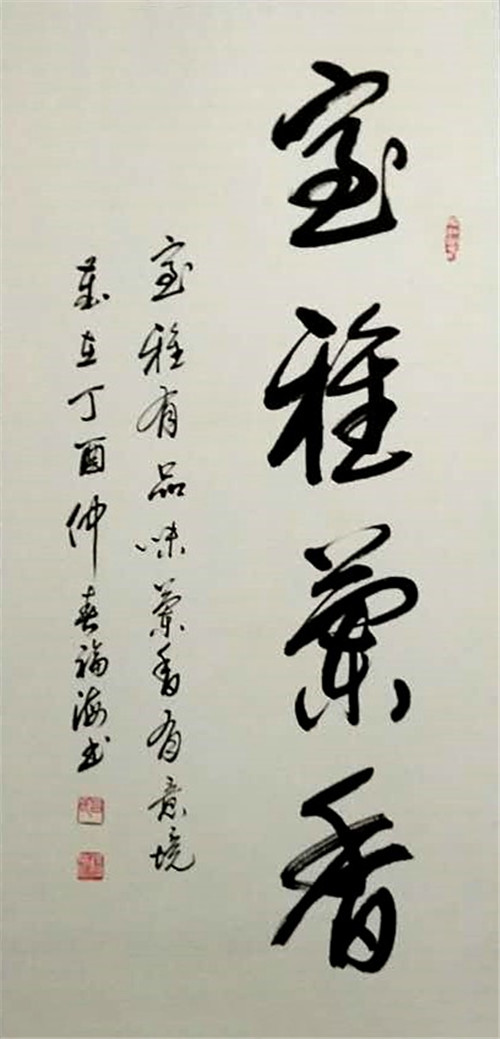 室雅蘭香
室雅有品味蘭香有意境
歲在丁酉仲春福海书